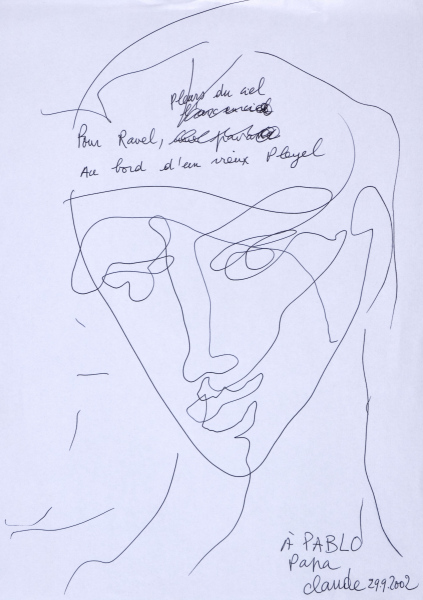 Pleurs du ciel
Pour Ravel,
Au bord d'un vieux Pleyel
À PABLO
Papa
claude 29.9.2002